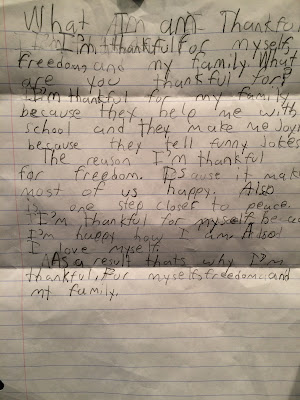 What I'm am Thankful
I'm thankful for myself,
freedom, and my family. What
are you thankful for?
I'm thankful for my family
because they help me with
school and they make me joy
because they tell funny jokes.
The reason I'm thankful
for freedom. Is cause it make
most of us happy. Also
is one step closer to peace.
I'm thankful for myself be-ca
I'm happy how I am. Also
I love myself.
As a result thats why I'm
thankful. For myself, freedom, and
my family.